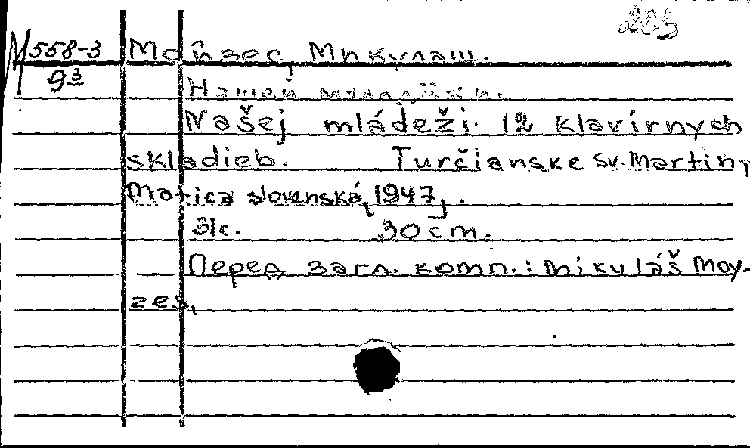 М 558-3 Мойзес, Микулаш.
93
Našej mládeži. 12 klavírnych
skladieb. Turčianske sv. Martin,
Matica slovenská, [1947].
31c. 30 cm.
Перед загл. комп.: Mikuláš Moy-
zes.